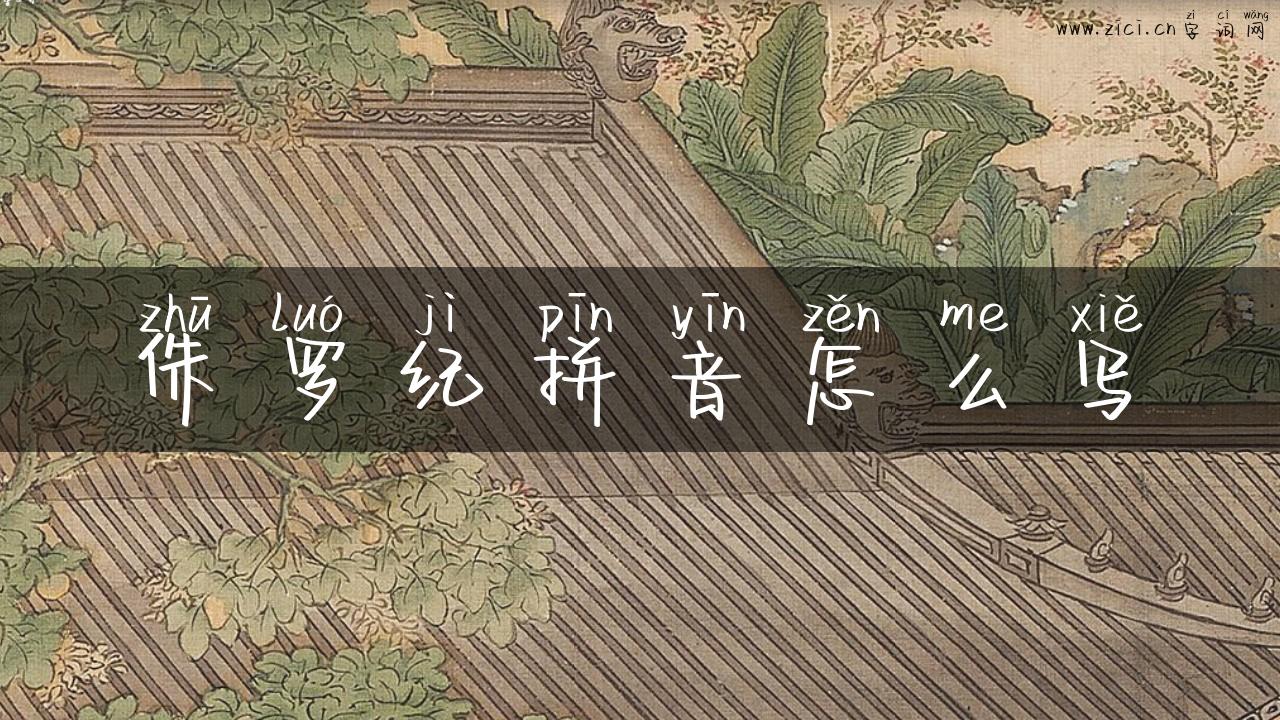 zì cí wǎng
www.zici.cn 字词网
zhū luó jì pīn yīn zěn me xiě
侏罗纪拼音怎么写